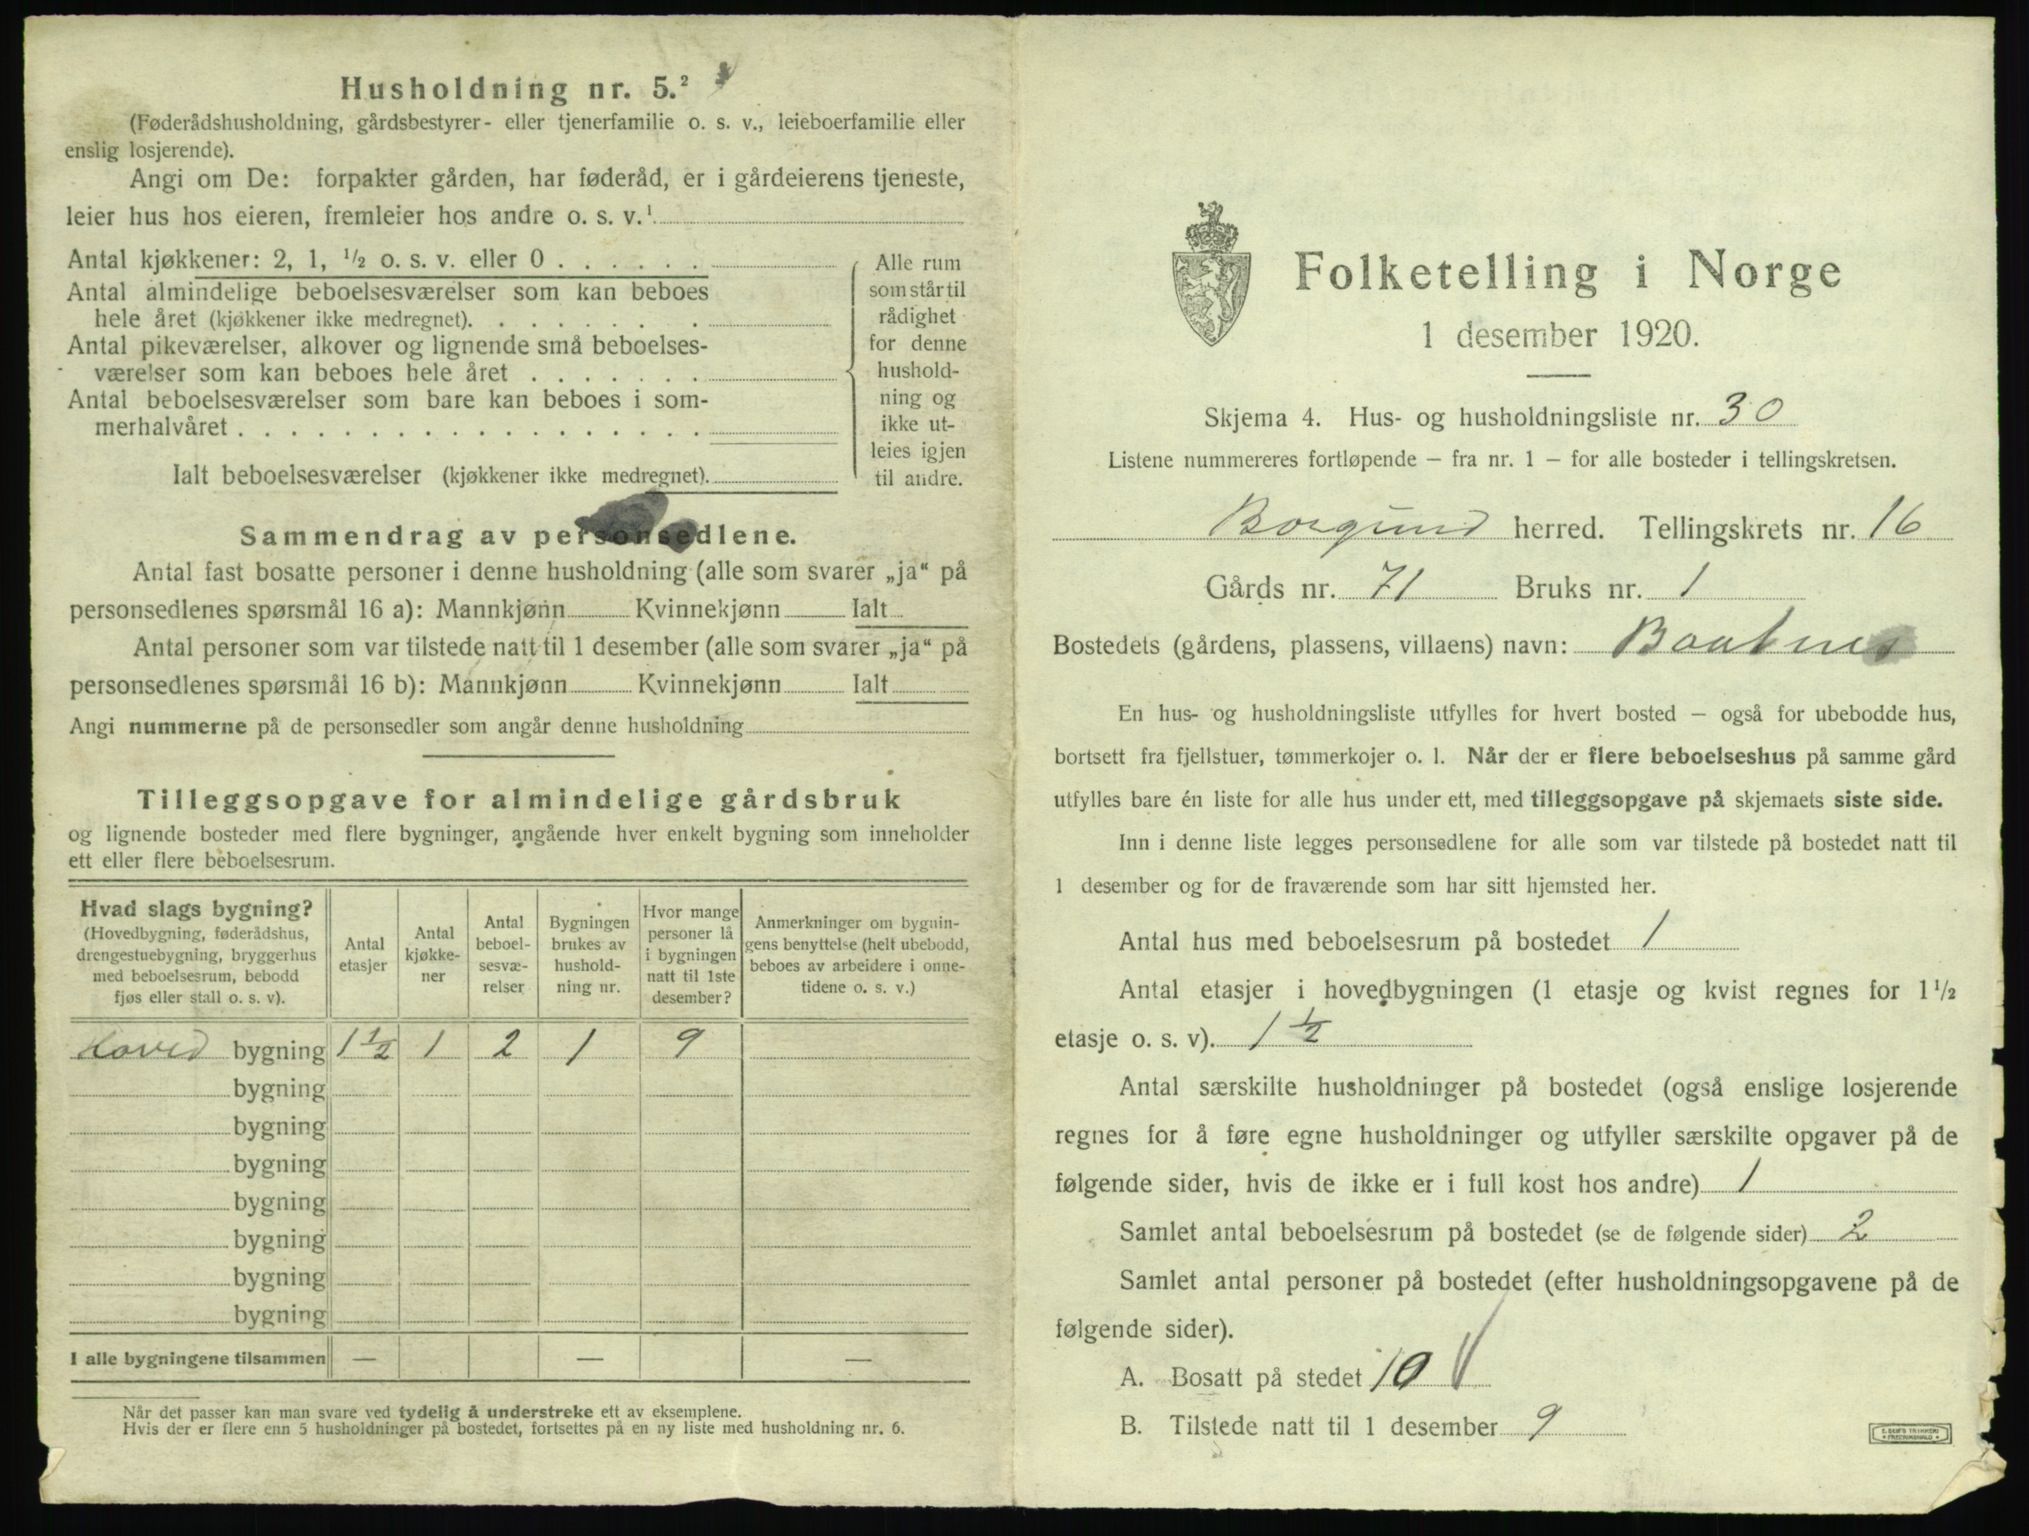 Husholdning nr. 5.²
(Føderådshusholdning, gårdsbestyrer- eller tjenerfamilie o. s. v., leieboerfamilie eller
enslig losjerende).
Angi om De: forpakter gården, har føderåd, er i gårdeierens tjeneste,
leier hus hos eieren, fremleier hos andre o. s. v.¹
Antal kjøkkener: 2, 1, ½ o. s. v. eller 0 . . . . . .
Antal almindelige beboelsesværelser som kan beboes
hele året (kjøkkener ikke medregnet). . . . . . . . .
Antal pikeværelser, alkover og lignende små beboelses-
værelser som kan beboes hele året . . . . . . .
Antal beboelsesværelser som bare kan beboes i som-
merhalvåret . . . . . . . . . . . . . . . . . .
Ialt beboelsesværelser (kjøkkener ikke medregnet).
Alle rum
som står til
rådighet
for denne
hushold-
ning og
ikke ut-
leies igjen
til andre.
Sammendrag av personsedlene.
Antal fast bosatte personer i denne husholdning (alle som svarer „ja“ på
personsedlenes spørsmål 16 a): Mannkjønn Kvinnekjønn Ialt
Antal personer som var tilstede natt til 1 desember (alle som svarer „ja“ på
personsedlenes spørsmål 16 b): Mannkjønn Kvinnekjønn Ialt
Angi nummerne på de personsedler som angår denne husholdning
Tilleggsopgave for almindelige gårdsbruk
og lignende bosteder med flere bygninger, angående hver enkelt bygning som inneholder
ett eller flere beboelsesrum.
Hvad slags bygning?
(Hovedbygning, føderådshus,
drengestuebygning, bryggerhus
med beboelsesrum, bebodd
fjøs eller stall o. s. v).
Antal
etasjer
Antal
kjøkke-
ner
Antal
beboel-
sesvæ-
relser
Bygningen
brukes av
hushold-
ning nr.
Hvor mange
personer lå
i bygningen
natt til 1ste
desember?
Anmerkninger om bygnin-
gens benyttelse (helt ubebodd,
beboes av arbeidere i onne-
tidene o. s. v.)
Hoved bygning 1 ½ 1 2 1 9
bygning
bygning
bygning
bygning
bygning
bygning
bygning
I alle bygningene tilsammen — — —
Når det passer kan man svare ved tydelig å understreke ett av eksemplene.
Hvis der er flere enn 5 husholdninger på bostedet, fortsettes på en ny liste med husholdning nr. 6.
Folketelling i Norge
1 desember 1920.
Skjema 4. Hus- og husholdningsliste nr. 30
Listene nummereres fortløpende – fra nr. 1 – for alle bosteder i tellingskretsen.
Borgund herred. Tellingskrets nr. 16
Gårds nr. 71 Bruks nr. 1
Bostedets (gårdens, plassens, villaens) navn: Baatnes
En hus- og husholdningsliste utfylles for hvert bosted – også for ubebodde hus,
bortsett fra fjellstuer, tømmerkojer o. l. Når der er flere beboelseshus på samme gård
utfylles bare én liste for alle hus under ett, med tilleggsopgave på skjemaets siste side.
Inn i denne liste legges personsedlene for alle som var tilstede på bostedet natt til
1 desember og for de fraværende som har sitt hjemsted her.
Antal hus med beboelsesrum på bostedet 1
Antal etasjer i hovedbygningen (1 etasje og kvist regnes for 1½
etasje o. s. v). 1 ½
Antal særskilte husholdninger på bostedet (også enslige losjerende
regnes for å føre egne husholdninger og utfyller særskilte opgaver på de
følgende sider, hvis de ikke er i full kost hos andre) 1
Samlet antal beboelsesrum på bostedet (se de følgende sider) 2
Samlet antal personer på bostedet (efter husholdningsopgavene på de
følgende sider).
A. Bosatt på stedet 10
B. Tilstede natt til 1 desember 9